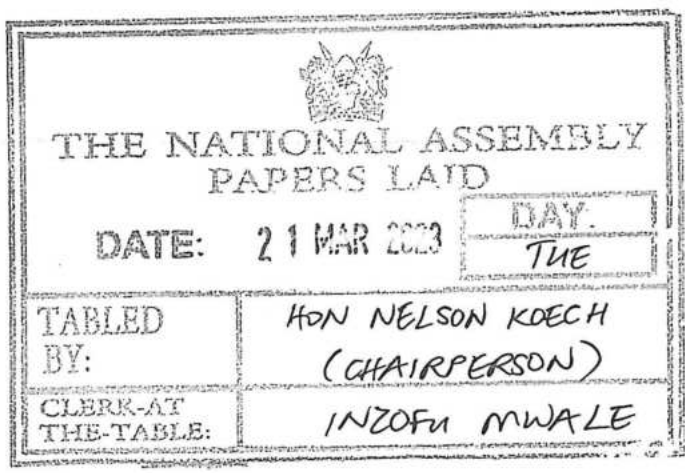 THE NATIONAL ASSEMBLY
PAPERS LAID
DATE: 21 MAR 2023 DAY.
TUE
TABLED BY: HON NELSON KOECH
(CHAIRPERSON)
CLERK-AT
THE-TABLE: INZOFU MWALE